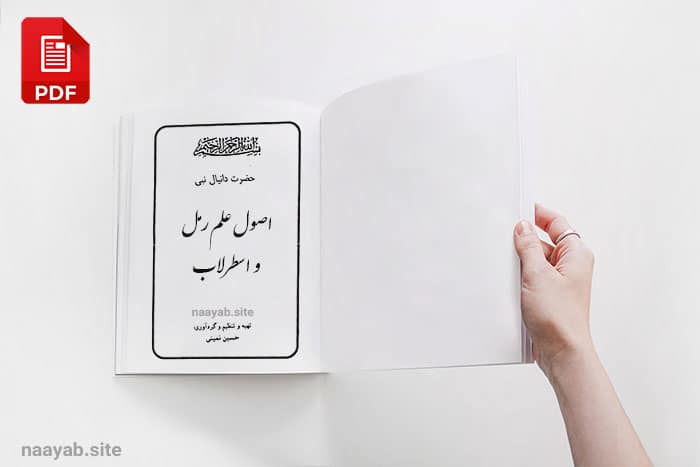 PDF
بسم الله الرحمن الرحیم
حضرت دانیال نبی
اصول علم رمل
و اسطرلاب
naayab.site
تهیه و تنظیم و گردآوری
حسین نمینی
naayab.site